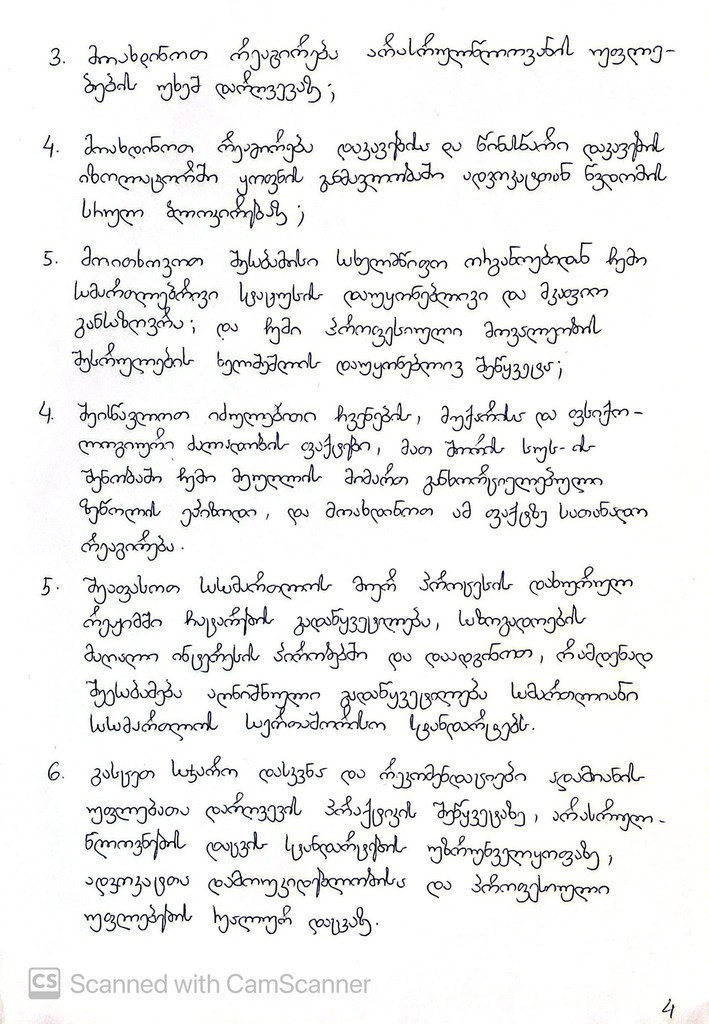 3. მოახდინოთ რეაგირება არასრულწლოვანის უფლე-
ბების უხეშ დარღვევაზე;
4. მოახდინოთ რეაგირება დაკავებისა და წინასწარი დაკავების
იზოლატორში ყოფნის განმავლობაში ადვოკატთან წვდომის
სრულ ბლოკირებაზე;
5. მოითხოვოთ შესაბამისი სახელმწიფო ორგანოებიდან ჩემი
სამართლებრივი სტატუსის დაუყონებლივი და მკაფიო
განსაზღვრა; და ჩემი პროფესიული მოვალეობის
შესრულების ხელშეშლის დაუყონებლივ შეწყვეტა;
4. შეისწავლოთ იძულებითი ჩვენების, მუქარისა და ფსიქო-
ლოგიური ძალადობის ფაქტები, მათ შორის სუს-ის
შენობაში ჩემი მეუღლის მიმართ განხორციელებული
ზეწოლის ეპიზოდი, და მოახდინოთ ამ ფაქტზე სათანადო
რეაგირება.
5. შეაფასოთ სასამართლოს მიერ პროცესის დახურულ
რეჟიმში ჩატარების გადაწყვეტილება, საზოგადოების
მაღალი ინტერესის პირობებში და დაადგინოთ, რამდენად
შეესაბამება აღნიშნული გადაწყვეტილება სამართლიანი
სასამართლოს საერთაშორისო სტანდარტებს.
6. გასცეთ საჯარო დასკვნა და რეკომენდაციები ადამიანის
უფლებათა დარღვევის პრაქტიკის შეწყვეტაზე, არასრულ-
წლოვნების დაცვის სტანდარტების უზრუნველყოფაზე,
ადვოკატთა დამოუკიდებლობისა და პროფესიული
უფლებების რეალურ დაცვაზე.
CS Scanned with CamScanner
4